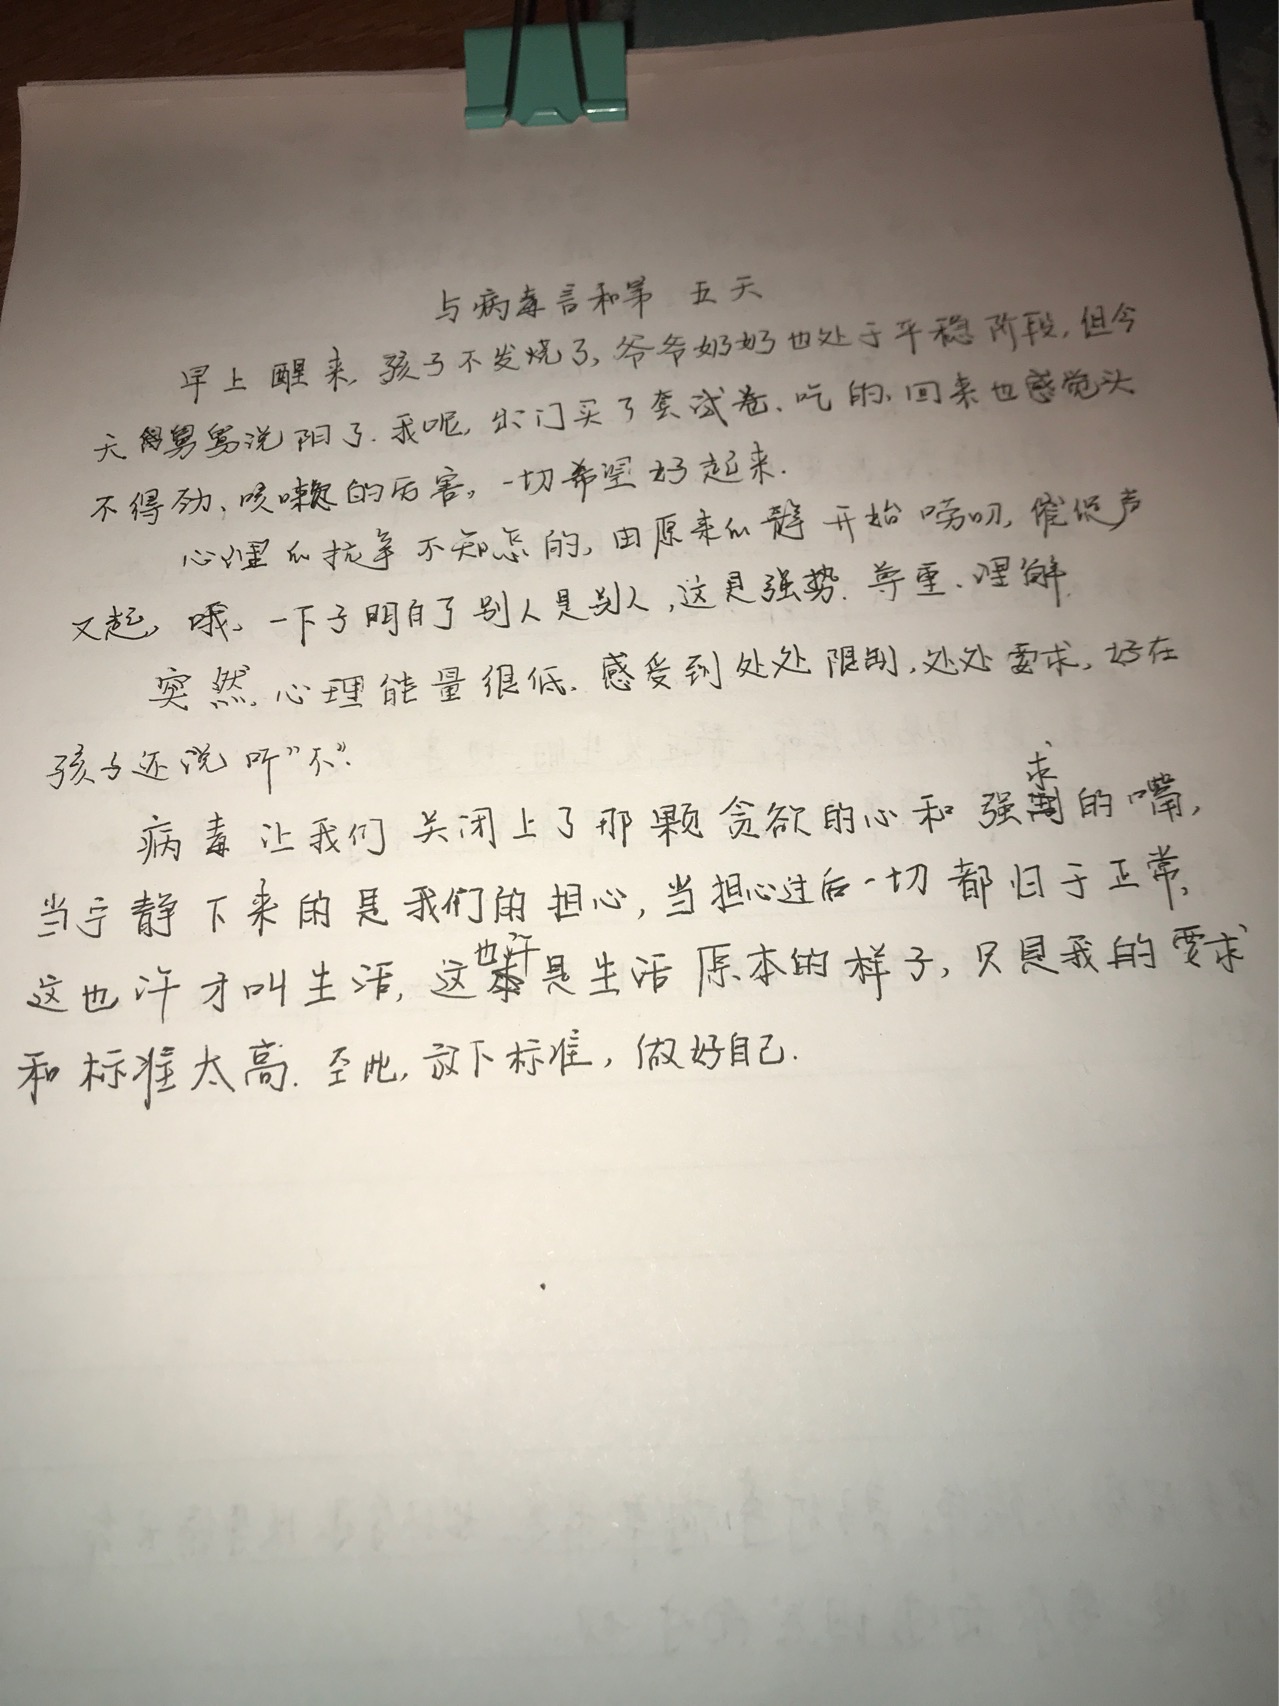 与病毒言和第 五天
早上醒来，孩子不发烧了，爷爷奶奶也处于平稳阶段，但今
天舅舅说阳了．我呢，出门买了套试卷、吃的，回来也感觉头
不得劲、咳嗽的厉害，一切希望好起来．
心理的抗争不知怎的，由原来的静开始唠叨，催促声
又起，哦，一下子明白了别人是别人，这是强势．尊重、理解．
突然，心理能量很低．感受到处处限制，处处要求，好在
孩子还说听"不"．
病毒让我们关闭上了那颗贪欲的心和强求的嘴，
当宁静下来的是我们的担心，当担心过后一切都归于正常，
这也许才叫生活，这也许是生活原本的样子，只是我的要求
和标准太高．至此，放下标准，做好自己．